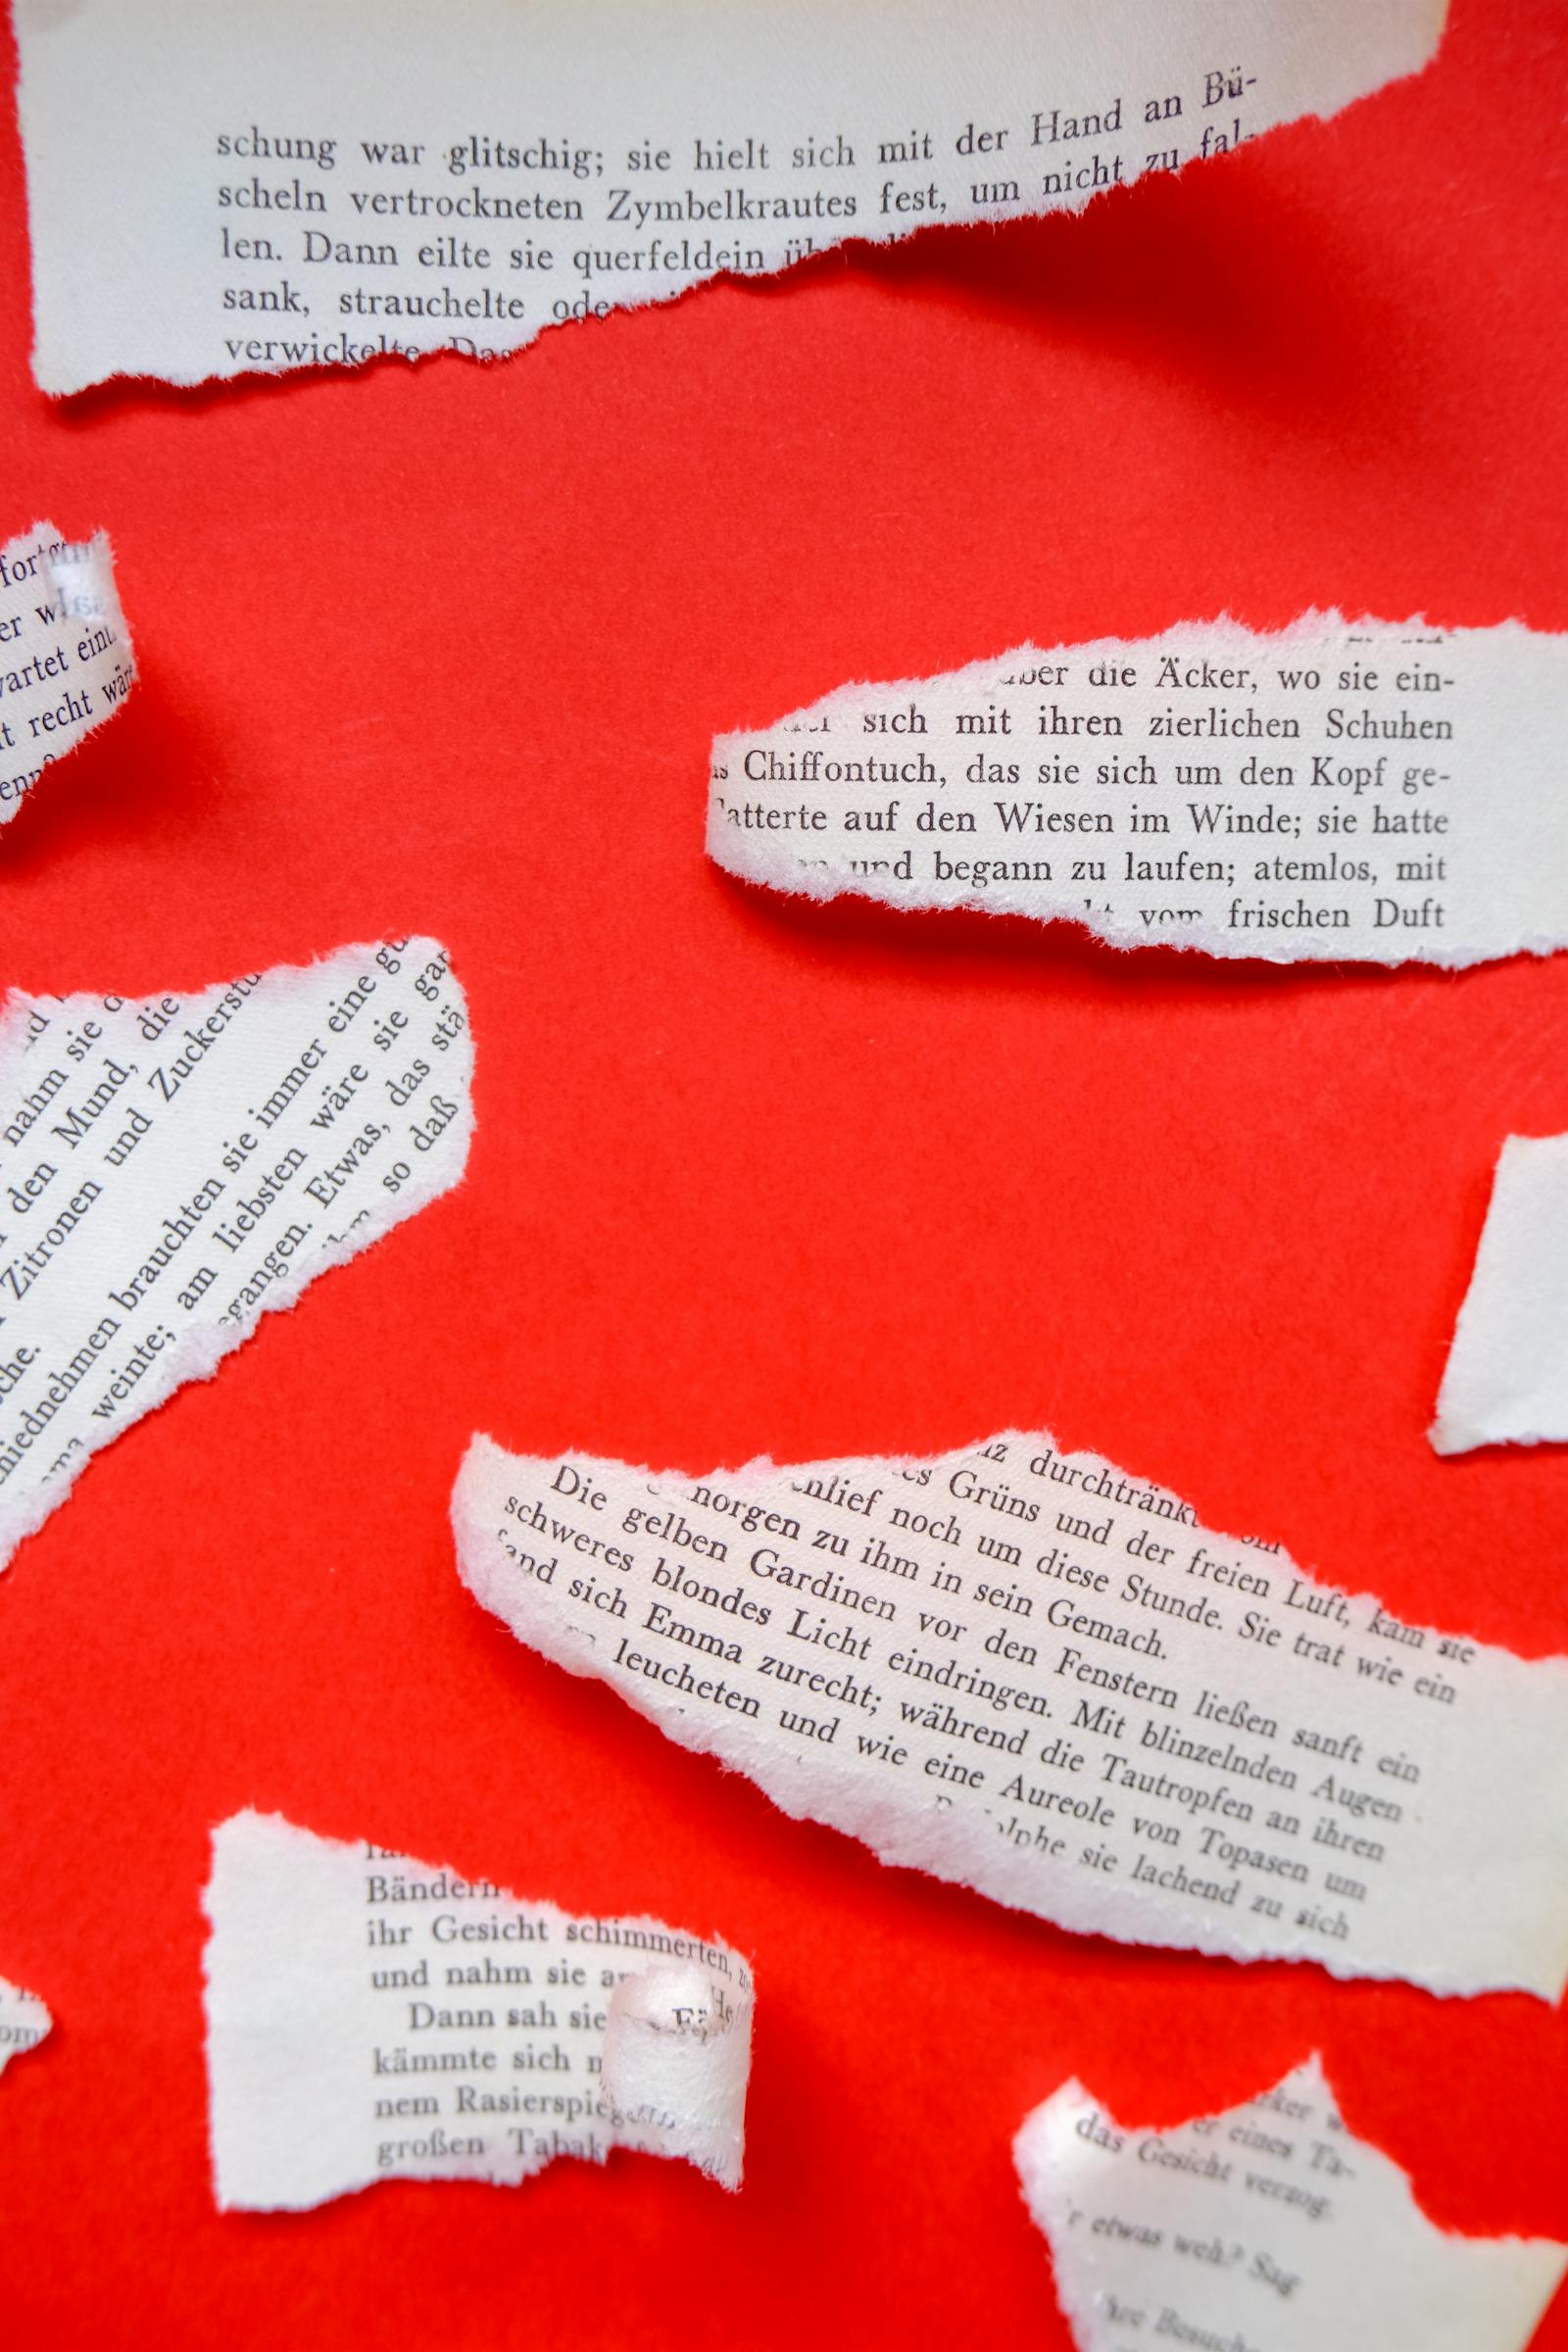 schung war glitschig; sie hielt sich mit der Hand an Bü-
scheln vertrockneten Zymbelkrautes fest, um nicht zu fal-
len. Dann eilte sie querfeldein
sank, strauchelte
verwickelte
recht
die Äcker, wo sie ein-
sich mit ihren zierlichen Schuhen
Chiffontuch, das sie sich um den Kopf ge-
auf den Wiesen im Winde; sie hatte
und begann zu laufen; atemlos, mit
vom frischen Duft
nahm sie
den Mund, die
Zitronen und
brauchten sie immer eine
weinte; am liebsten wäre sie
Etwas, das
so daß
durchtränkt
Grüns und der freien Luft, kam sie
noch um diese Stunde. Sie trat wie ein
zu ihm in sein Gemach.
Die gelben Gardinen vor den Fenstern ließen sanft ein
schweres blondes Licht eindringen. Mit blinzelnden Augen
sich Emma zurecht; während die Tautropfen an ihren
leucheten und wie eine Aureole von Topasen um
sie lachend zu sich
Bändern
ihr Gesicht schimmerten,
und nahm sie
Dann sah sie
kämmte sich
nem
großen
eines Ta-
das Gesicht verzog.
etwas weh? Sag